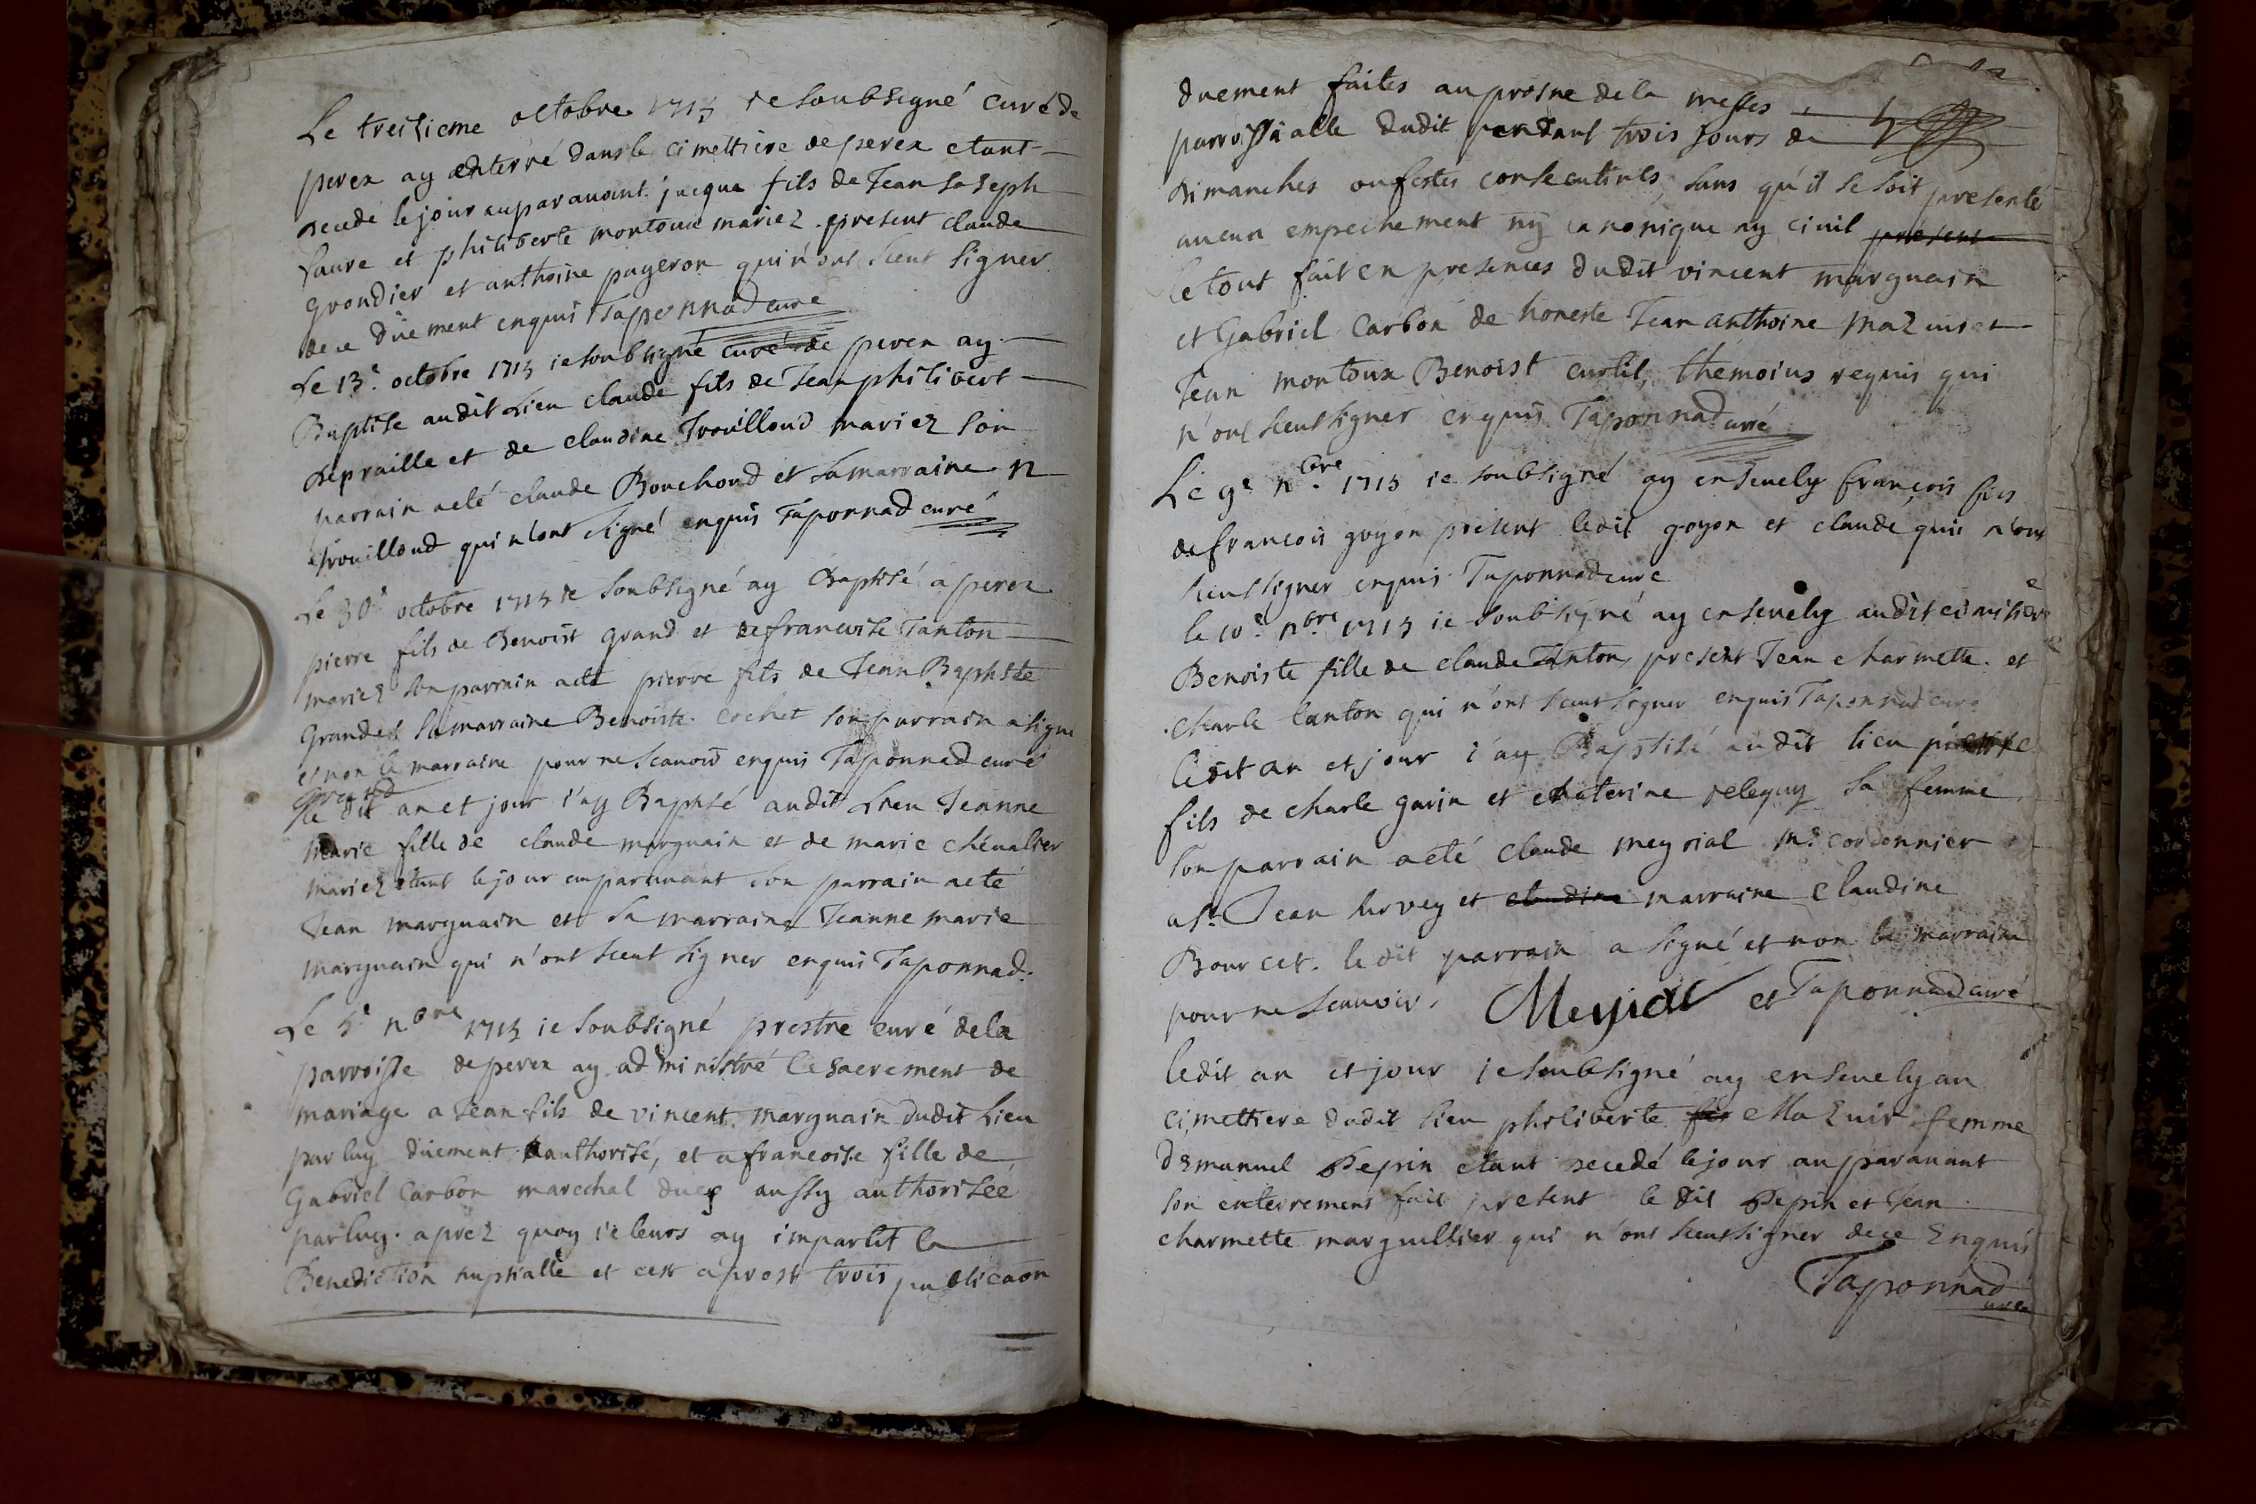 Le treisieme octobre 1715 ie soubsigné curé de
perex ay enterré dans le cimettiere de perex etant
decedé le jour auparavant jacque fils de Jean Joseph
faure et philiberte montoux mariez. present claude
grondier et anthoine pugeron qui n'ont sceut signer
de ce düement enquis Taponnad curé
Le 13e. octobre 1715 ie soubsigné curé de perex ay
Baptise audit Lieu claude fils de Jean philibert
depraille et de claudine Trouilloud mariez son
parrain a eté claude Bouchoud et sa marraine n
trouilloud qui n'ont signé enquis Taponnad curé
Le 30e octobre 1715 ie soubsigné ay Baptisé a perex
pierre fils de Benoist Grand et de francoise Tanton
mariez son parrain a eté pierre fils de Jean Baptiste
Grand et sa marraine Benoiste Cochet son parrain a signé
et non la marraine pour ne scavoir enquis Taponnad curé
Grand
Le dit an et jour i'ay Baptisé audit Lieu Jeanne
Marie fille de claude marguain et de marie chevalier
mariez etant le jour auparavant son parrain a eté
Jean marguain et sa marraine Jeanne marie
marguain qui n'ont sceut signer enquis Taponnad.
Le 5e nbre 1715 ie soubsigné prestre curé de la
parroisse de perex ay administré le sacrement de
mariage a Jean fils de vincent marguain dudit Lieu
par luy düement authorisé, et a francoise fille de
Gabriel Carbon marechal aussy authoriseé
par luy. aprez quoy ie leurs ay impartit la
Benediction nuptialle et cest aprest trois publicaon
duement faites au prosne de la messes
parroissialle dudit pendant trois jours de
Dimanches ou festes consecutives, sans qu'il se soit presenté
aucun empechement ny canonique ny civil present
le tout fait en presences dudit vincent marguain
et Gabriel Carbon de honeste Jean anthoine Mazuir et
Jean montoux Benoist curtil, themoins requis qui
n'ont sceut signer enquis Taponnad curé
Le 9e nbre. 1715 ie soubsigné ay ensevely francois fils
de francois goyon present ledit goyon et claude quis n'ont
sceut signer enquis Taponnad curé
le 10e. nbre 1715 ie soubsigné ay ensevely audit cimitiere
Benoiste fille de claude Tanton, present Jean charmette et
charle tanton qui n'ont sceut signer enquis Taponnad curé
ledit an et jour i'ay Baptisé audit lieu pierre
fils de charle garin et chaterine peleguy sa femme
son parrain a eté claude meyrial md. cordonnier
a st. Jean survey et claudine marraine claudine
Bourcet. le dit parrain a signé et non la marraine
pour ne scauvoir. Meyrial et Taponnad curé
ledit an et jour ie soubsigné ay ensevely au
cimettiere dudit lieu philiberte Mazuir femme
D'emanuel Pepin etant decedé le jour auparavant
son enterrement fait present le dit Pepin et Jean
charmette marguillier qui n'ont sceut signer de ce Enquis
Taponnad
curé